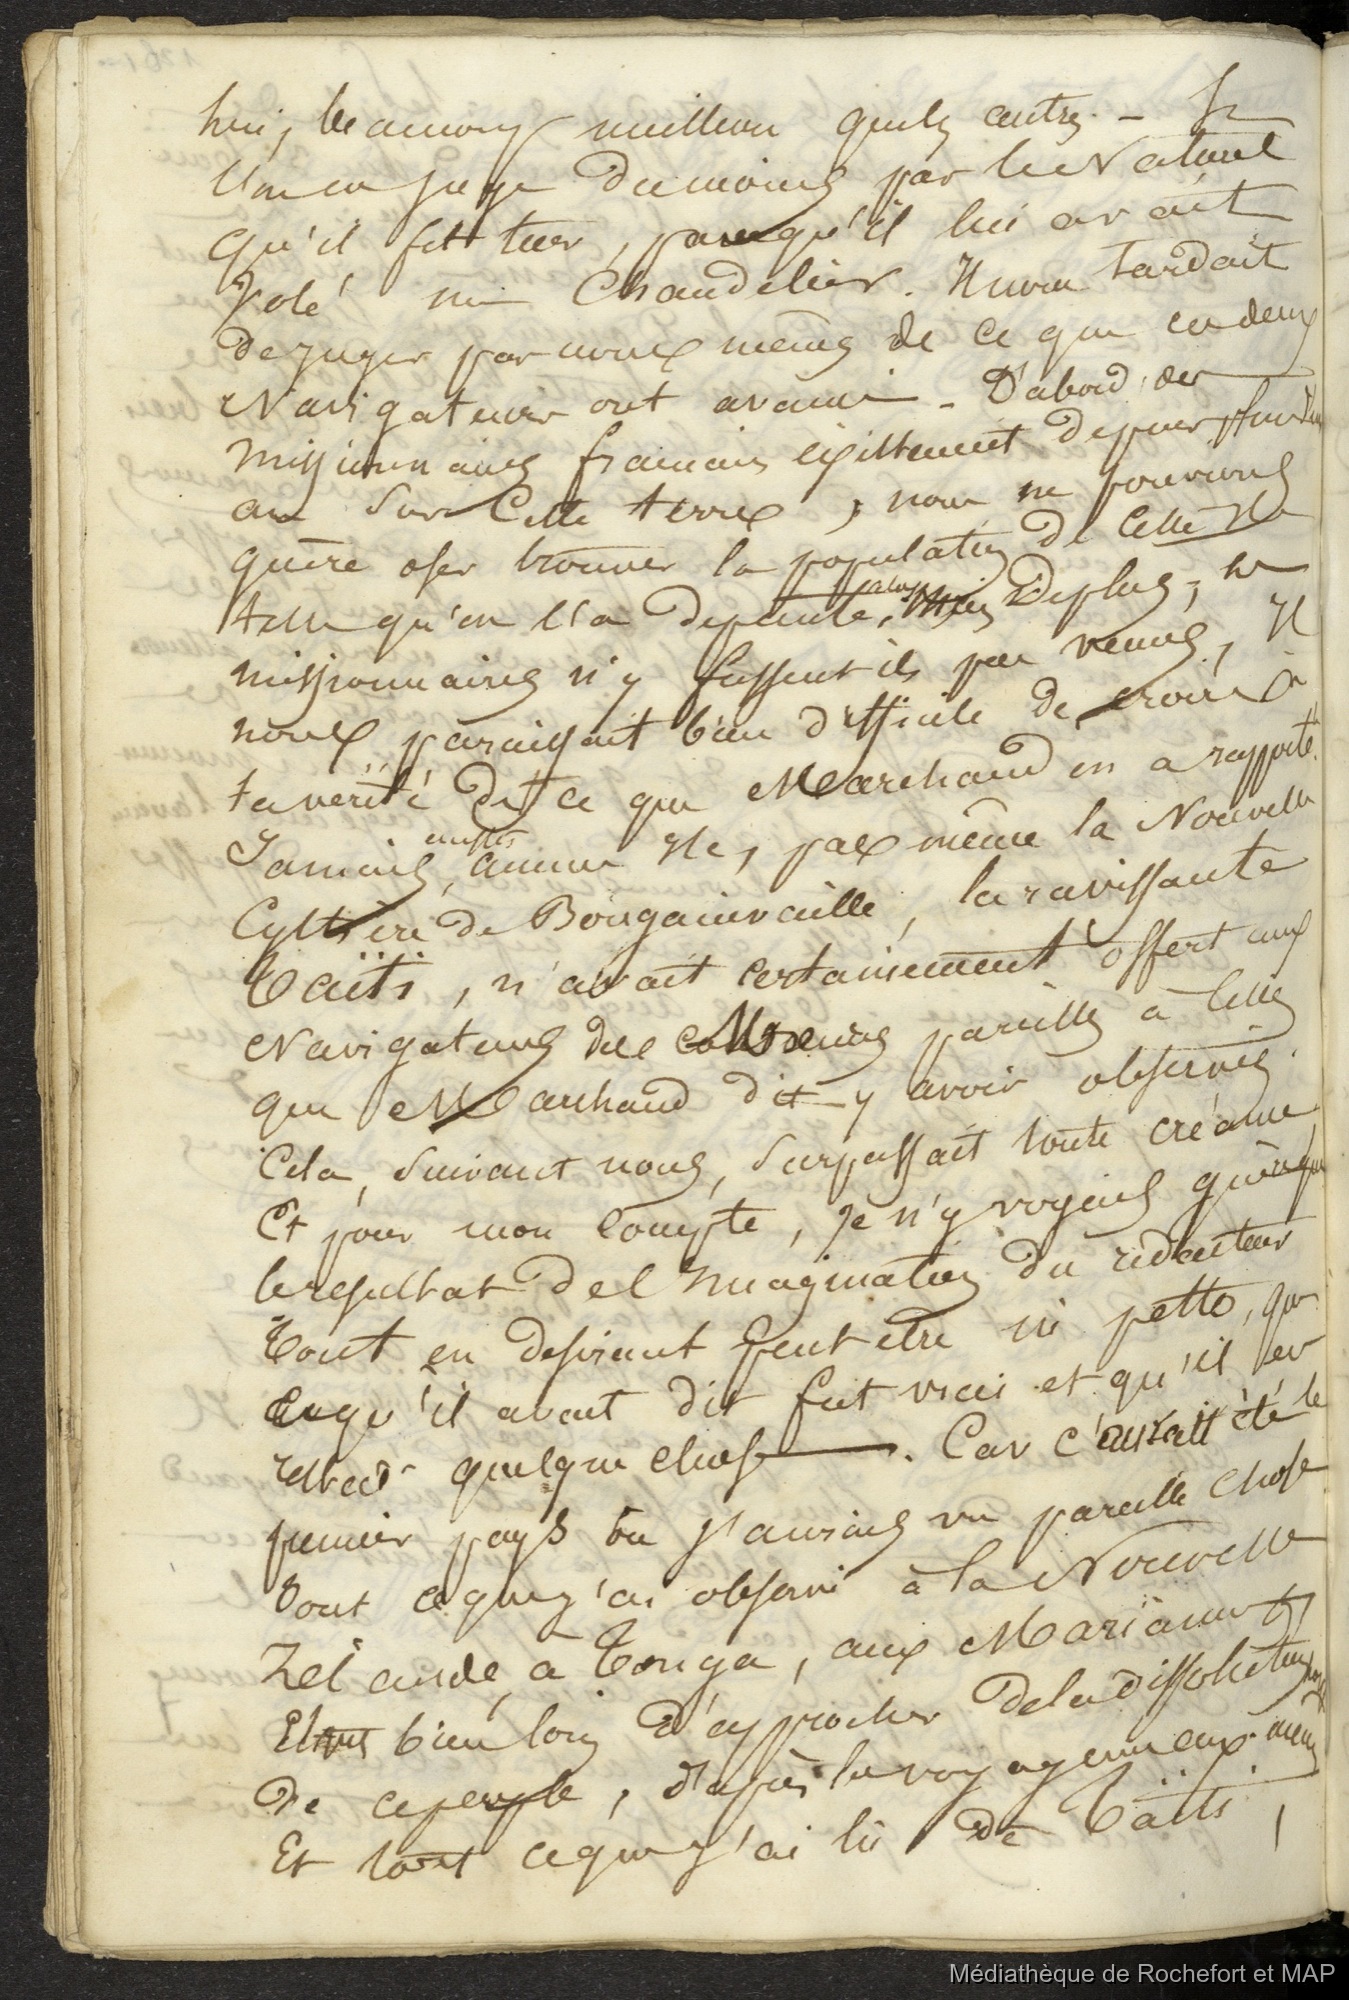 lui, beaucoup meilleur que les autres. – Si
l'on en juge du moins par le Naturel
qu'il fit tuer, parcequ'il lui avait
Volé un Chandelier. Il nous tardait
de juger par nous mêmes de ce que ces deux
Navigateurs ont avancé – D'abord des
missionnaires français éxistaient depuis plus d'un
an sur Cette terre, nous ne pouvions
guère oser trouver la population de Cette Ile
telle qu'on l'a depeinte, De plus, les
missionnaires n'y fussent ils pas venus, Il
nous paraissait bien difficile de croire à
la verité de ce que Marchand en a rapporté.
Jamais, aucune Ile, pas même la Nouvelle
Cythère de Bougainvaille, la ravissante
Taïti, n'avait certainement offert aux
Navigateurs des pareilles à celles
que Marchand dit y avoir observées.
Cela, suivant nous, surpassait toute créance,
Et pour mon compte, je n'y voyais guère que
le resultat de l'Imagination du rédacteur
Tout en desirant peut être in petto, que
ce qu'il avait dit fut vrai et qu'il en
restat quelque chose. Car c'aurait été le
premier pays où j'aurais vu pareille chose
Tout ce que j'ai observé à la Nouvelle
Zélande, à Tonga, aux Mariannes
Etait bien loin d'approcher de la dissolution
de ce peuple, d'après les voyageurs eux-mêmes
Et tout ce que j'ai lu de Taïti,